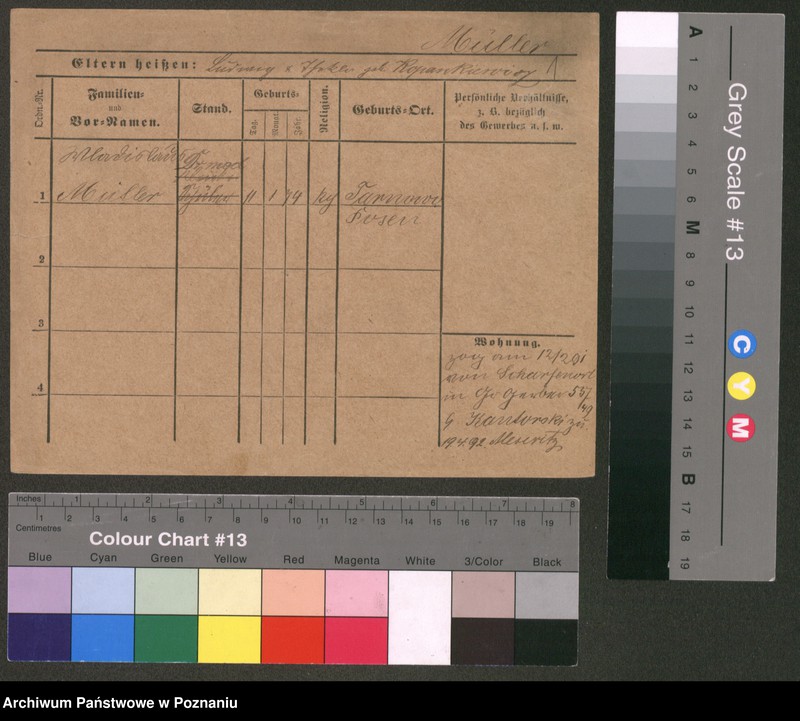 Müller
Eltern heißen: Ludwig u Thekla geb Kopankiewicz
Lede.-Nr.
Familien-
und
Vor-Namen.
Stand.
Geburts-
Tag.
Monat.
Jahr.
Religion.
Geburts-Ort.
Persönliche Verhältnisse,
z. B. bezüglich
des Gewerbes u. s. w.
Wladislaus
1 Müller Schüler 11 1 74 kg Tarnowo
Posen
2
3
4
Wohnung.
zog am 12/2
von Scharfenort
in Gr Gerber 55/
b Kantorski zu
19 4. 92 Meseritz
Inches 1 2 3 4 5 6 7 8
Centimetres 1 2 3 4 5 6 7 8 9 10 11 12 13 14 15 16 17 18 19
Colour Chart #13
Blue Cyan Green Yellow Red Magenta White 3/Color Black
Grey Scale #13
A 1 2 3 4 5 6 M 8 9 10 11 12 13 14 15 B 17 18 19
C Y M
Archiwum Państwowe w Poznaniu